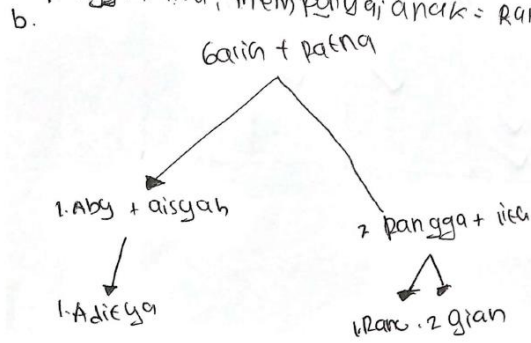 mempunyai anak = Ran
b.
Garin + Ratna
1. Aby + aisyah
2 Rangga + iita
1. Aditya
1. Rano . 2 gian